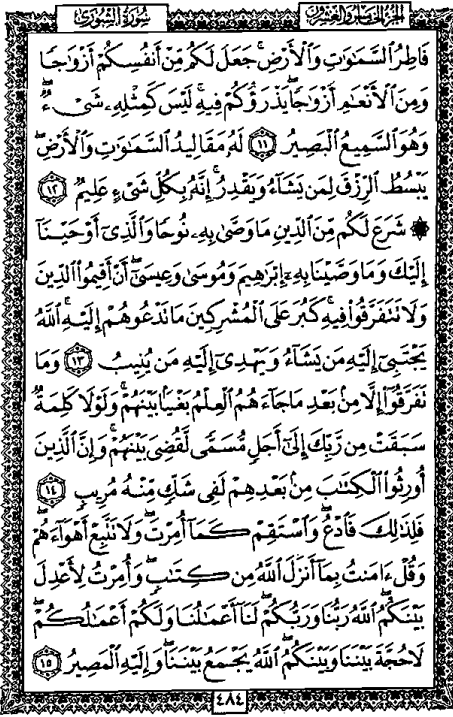 سُورَةُ الشُّورَىٰ
الجُزْءُ الخَامِسُ وَالعِشْرُونَ
فَاطِرُ السَّمَٰوَٰتِ وَالْأَرْضِ ۚ جَعَلَ لَكُم مِّنْ أَنفُسِكُمْ أَزْوَٰجًا
وَمِنَ الْأَنْعَٰمِ أَزْوَٰجًا ۖ يَذْرَؤُكُمْ فِيهِ ۚ لَيْسَ كَمِثْلِهِۦ شَىْءٌ ۖ
وَهُوَ السَّمِيعُ الْبَصِيرُ ۝١١ لَهُۥ مَقَالِيدُ السَّمَٰوَٰتِ وَالْأَرْضِ ۖ
يَبْسُطُ الرِّزْقَ لِمَن يَشَآءُ وَيَقْدِرُ ۚ إِنَّهُۥ بِكُلِّ شَىْءٍ عَلِيمٌ ۝١٢
۞ شَرَعَ لَكُم مِّنَ الدِّينِ مَا وَصَّىٰ بِهِۦ نُوحًا وَالَّذِىٓ أَوْحَيْنَآ
إِلَيْكَ وَمَا وَصَّيْنَا بِهِۦٓ إِبْرَٰهِيمَ وَمُوسَىٰ وَعِيسَىٰٓ ۖ أَنْ أَقِيمُوا۟ الدِّينَ
وَلَا تَتَفَرَّقُوا۟ فِيهِ ۚ كَبُرَ عَلَى الْمُشْرِكِينَ مَا تَدْعُوهُمْ إِلَيْهِ ۚ اللَّهُ
يَجْتَبِىٓ إِلَيْهِ مَن يَشَآءُ وَيَهْدِىٓ إِلَيْهِ مَن يُنِيبُ ۝١٣ وَمَا
تَفَرَّقُوٓا۟ إِلَّا مِنۢ بَعْدِ مَا جَآءَهُمُ الْعِلْمُ بَغْيًۢا بَيْنَهُمْ ۚ وَلَوْلَا كَلِمَةٌ
سَبَقَتْ مِن رَّبِّكَ إِلَىٰٓ أَجَلٍ مُّسَمًّى لَّقُضِىَ بَيْنَهُمْ ۚ وَإِنَّ الَّذِينَ
أُورِثُوا۟ الْكِتَٰبَ مِنۢ بَعْدِهِمْ لَفِى شَكٍّ مِّنْهُ مُرِيبٍ ۝١٤
فَلِذَٰلِكَ فَادْعُ ۖ وَاسْتَقِمْ كَمَآ أُمِرْتَ ۖ وَلَا تَتَّبِعْ أَهْوَآءَهُمْ ۖ
وَقُلْ ءَامَنتُ بِمَآ أَنزَلَ اللَّهُ مِن كِتَٰبٍ ۖ وَأُمِرْتُ لِأَعْدِلَ
بَيْنَكُمُ ۖ اللَّهُ رَبُّنَا وَرَبُّكُمْ ۖ لَنَآ أَعْمَٰلُنَا وَلَكُمْ أَعْمَٰلُكُمْ ۖ
لَا حُجَّةَ بَيْنَنَا وَبَيْنَكُمُ ۖ اللَّهُ يَجْمَعُ بَيْنَنَا ۖ وَإِلَيْهِ الْمَصِيرُ ۝١٥
٤٨٤